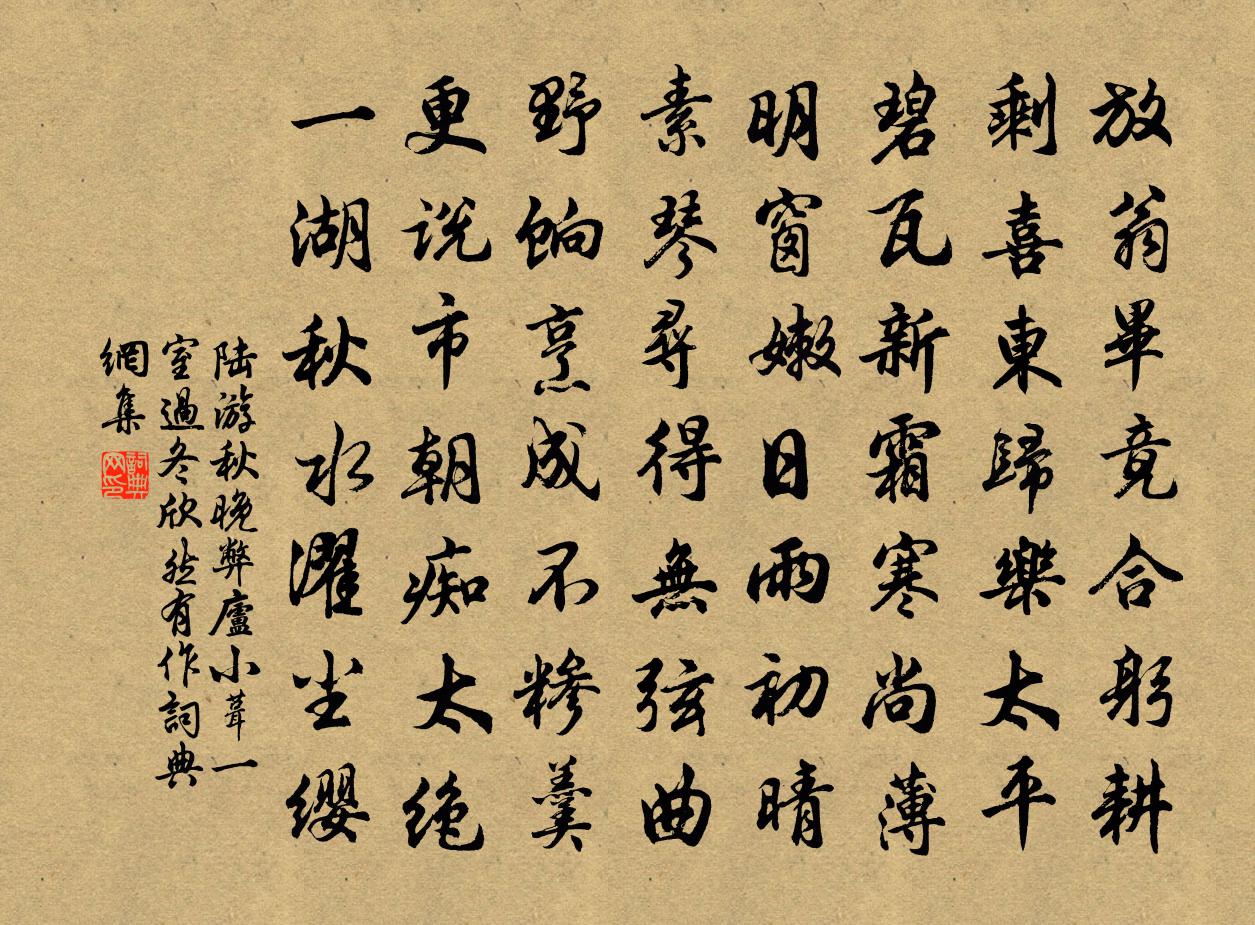 放翁畢竟合躬耕
剩喜東歸樂太平
碧瓦新霜寒尚薄
明窗嫩日雨初晴
素琴尋得無弦曲
野餉烹成不糝羹
更说市朝痴太绝
一湖秋水濯尘缨
陆游秋晚弊廬小葺一
室過冬欣然有作詞典
網集
詞典网印